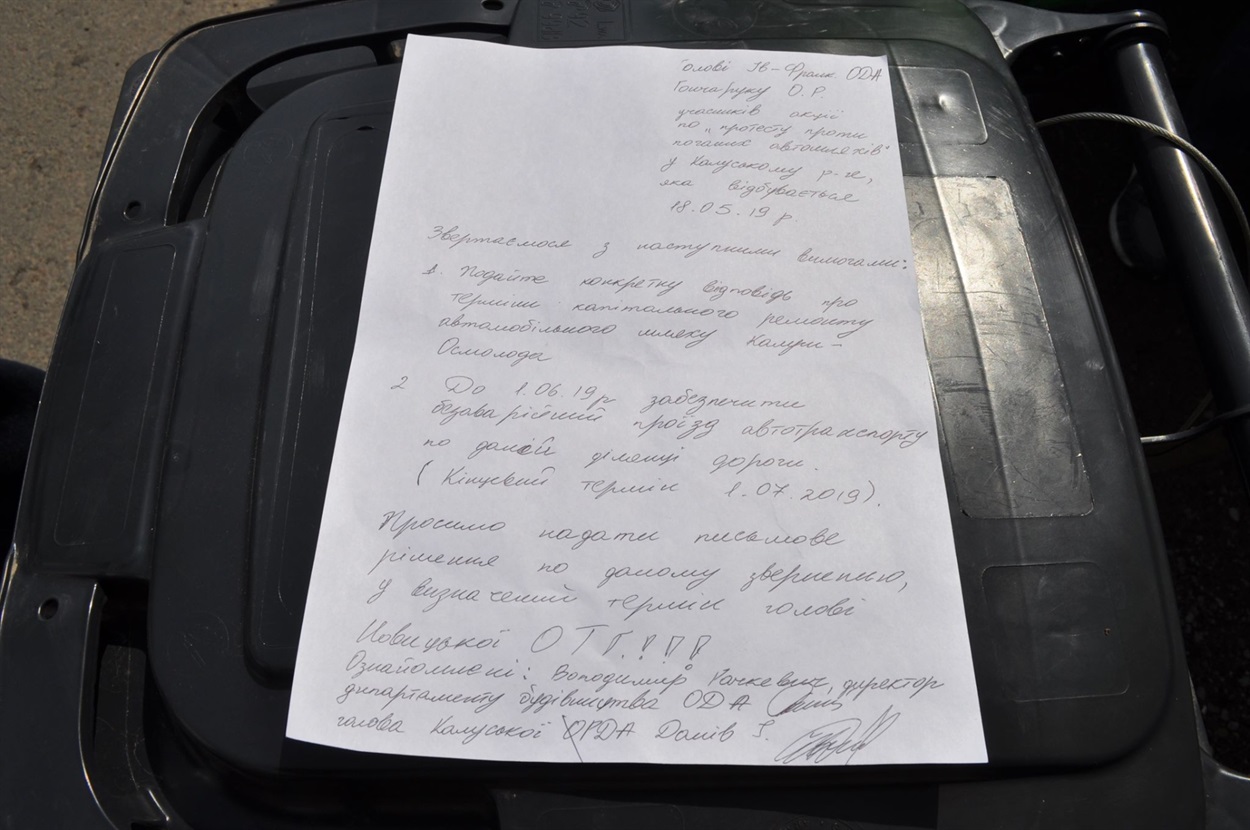 Голові Ів-Франк ОДА
Гончаруку О.Р.
учасників акції
по „протесту проти
поганих автошляхів"
у Калуському р-не,
яка відбувається
18.05.19 р.
Звертаємося з наступними вимогами:
1. Подайте конкретну відповідь про
терміни капітального ремонту
автомобільного шляху Калуш-
Осмолода
2 До 1.06.19р забезпечити
безаварійний проїзд автотранспорту
по даній ділянці дороги.
(Кінцевий термін 1.07.2019).
Просимо надати письмове
рішення по даному зверненню,
у визначений термін голові
Новицької ОТГ!!!
Ознайомлені: Володимир Гачкевич, директор
департаменту будівництва ОДА
голова Калуської РДА Данів І.